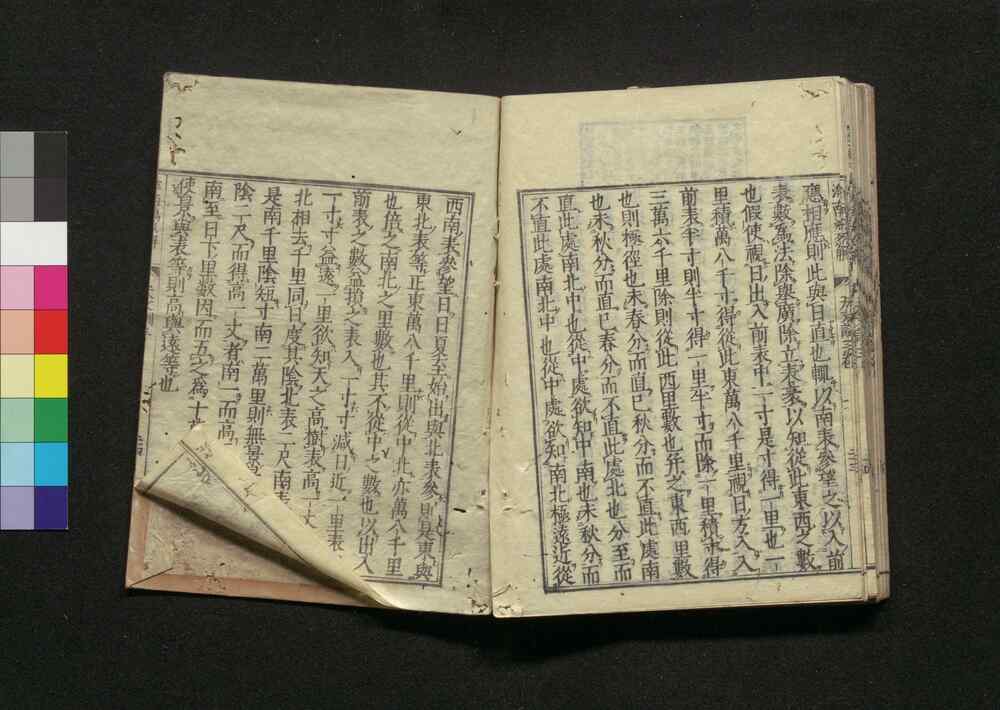 應相應則此與日直也輒以南表參望之以入前
表數爲法除擧廣除立表袤以知從此東西之數
也假使視日出入前表中一寸是寸得一里也一
里積萬八千寸得從此東萬八千里視日方入入
前表半寸則半寸得一里半寸而除一里積寸得
三萬六千里除則從此西里數也幷之東西里數
也則極徑也未春分而直已秋分而不直此處南
也未秋分而直已春分而不直此處北也分至而
直此處南北中也從中處欲知中南也未秋分而
不直此處南北中也從中處欲知南北極遠近從
西南表參望日日夏至始出與北表參則是東與
東北表等正東萬八千里則從中北亦萬八千里
也倍之南北之里數也其不從中之數也以出入
前表之數益損之表入一寸寸減日近一里表
一寸寸益遠一里欲知天之高樹表高一丈
北相去千里同日度其陰北表一尺南表
是南千里陰短寸南二萬里則無景
陰二尺而得高一丈者南一而高
南至日下里數因而五之爲十萬
使景與表等則高與遠等也